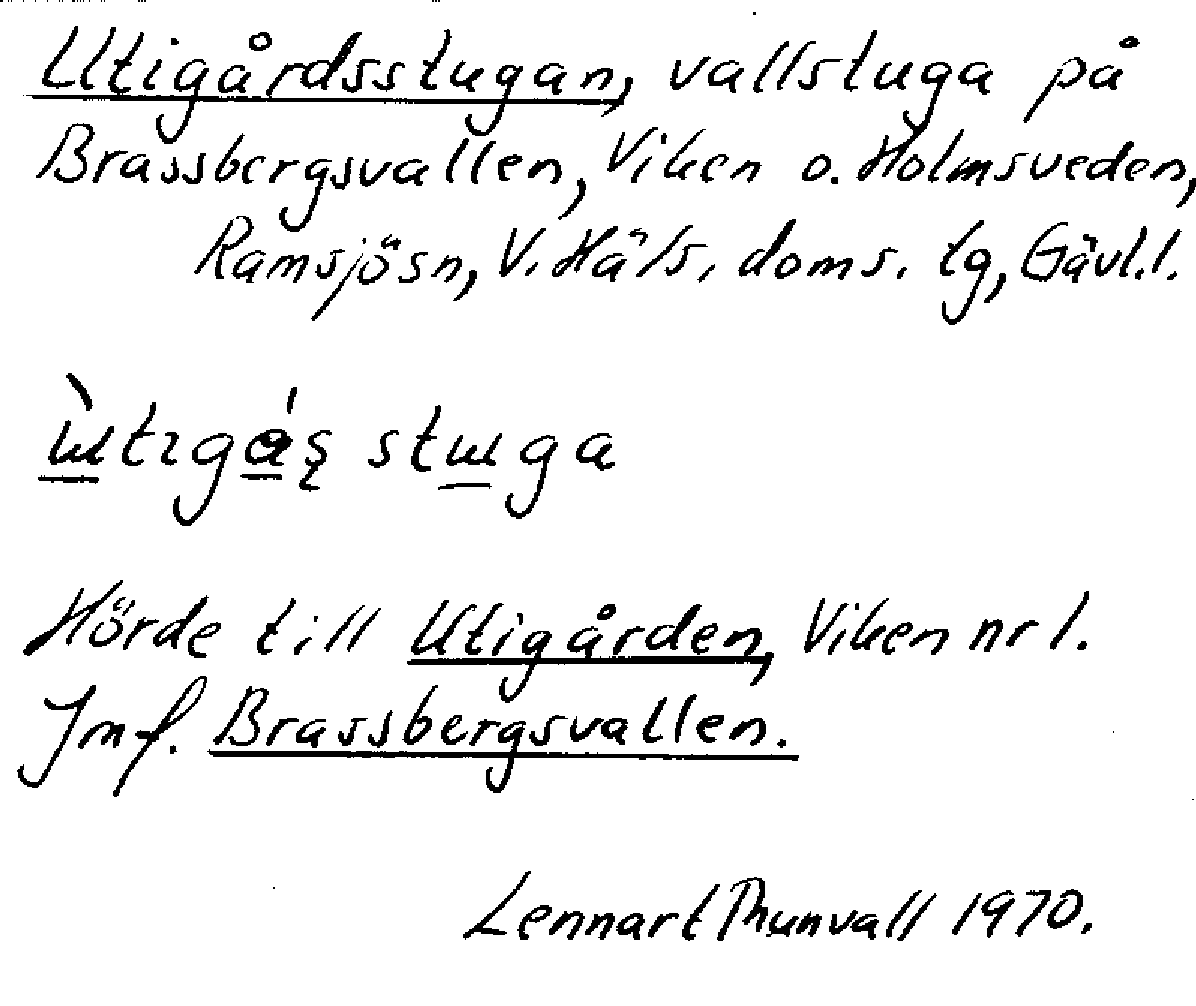 Utigårdsstugan, vallstuga på
Brassbergsvallen, Viken o. Holmsveden,
Ramsjösn, V. Häls. doms. tg, Gävl.l.
stɯga
Hörde till Utigården, Viken nr 1.
Jmf. Brassbergsvallen.
Lennart Thunvall 1970.